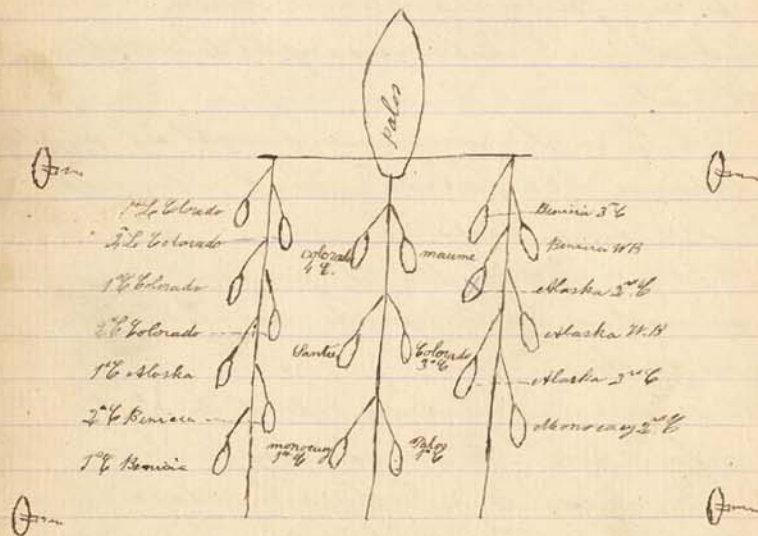 Palos
1st L Colorado
2nd L Colorado
1st C Colorado
2nd C Colorado
1st C Alaska
2nd C Benicia
1st C Benicia
Colorado
4 C.
maume
Santee
Colorado
3rd C
monocacy
1st C
Palos
1st C
Benicia 3rd C
Benicia W.B
Alaska 2nd C
Alaska W.B
Alaska 3rd C
Monocacy 2nd C